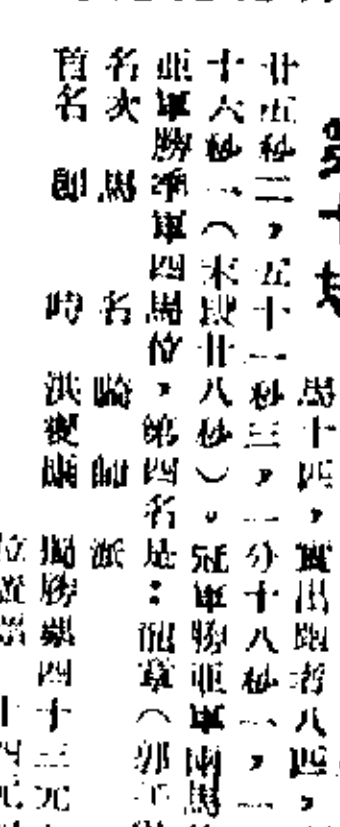 十場
馬十四,實出跑者八匹,
廿五秒二,五十一秒三,一分十八秒一,一
十六秒一(末段廿八秒)。冠軍勝亞軍兩馬
亞軍勝季軍四馬位,第四名是:龍章(郭子
名次 馬名 騎師 派
首名 即時 洪 獨勝 四十三元
位置 十四元